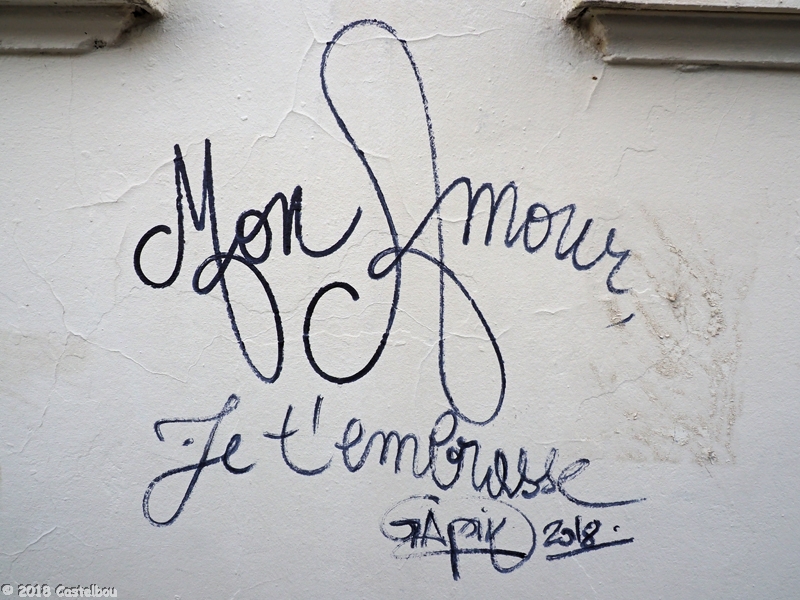 Mon Amour,
Je t'embrasse
GApik 2018.
© 2018 Castelbou